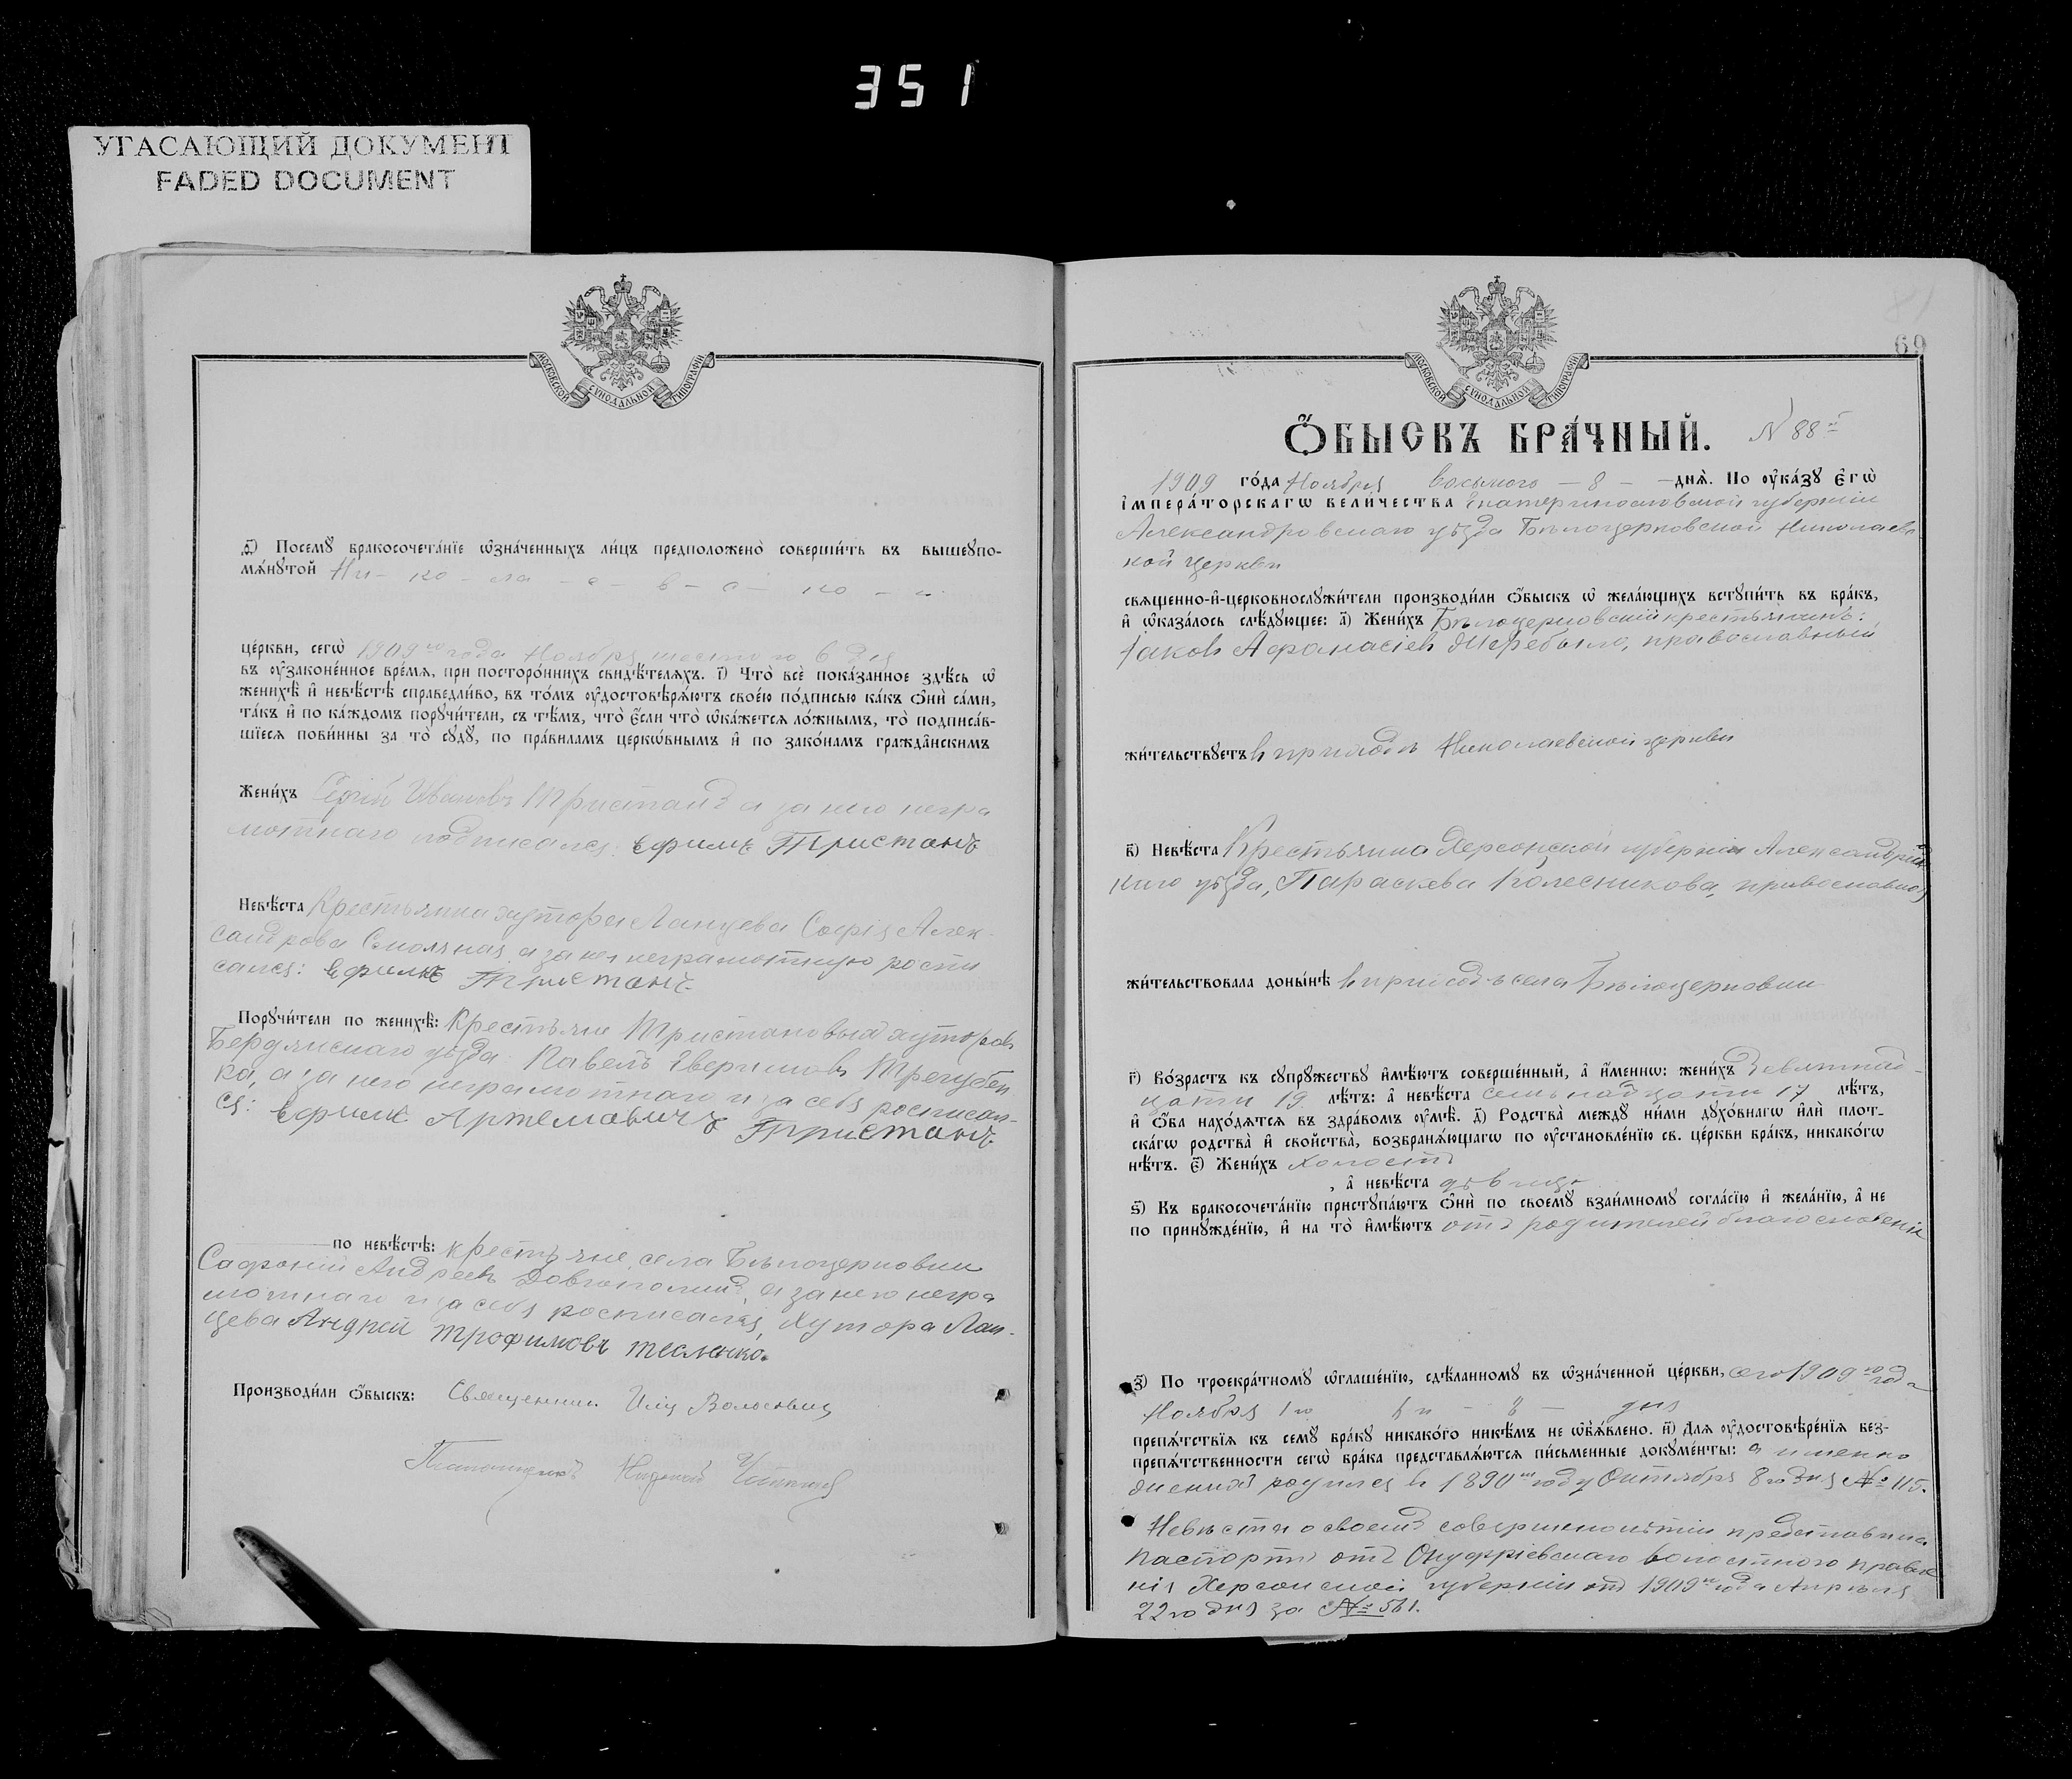 351
УГАСАЮЩИЙ ДОКУМЕНТ
FADED DOCUMENT
МОСКОВСКОЙ СѴНОДАЛЬНОЙ ТИПОГРАФІИ
Посемꙋ бракосочета́нїе ѡ҆зна́ченныхъ ли́цъ предположено̀ соверши́ть въ вышеупо-
мѧ́нꙋтой Ни - ко - ла - е - в - с - ко - й
це́ркви, сегѡ̀ 1909го года Ноября шестого 6 дня
въ ᲂу҆зако́ненное вре́мѧ, при посторо́ннихъ свидѣ́телѧхъ. і҃) Что̀ всѐ пока́занное здѣ́сь ѡ҆
женихѣ̀ и҆ невѣ́стѣ справедли́во, въ то́мъ ᲂу҆достовѣрѧ́ютъ свое́ю по́дписью ка́къ ѻ҆нѝ са́ми,
та́къ и҆ по ка́ждомъ порꙋчи́тели, съ тѣ́мъ, что̀ є҆́сли что̀ ѡ҆ка́жетсѧ ло́жнымъ, то̀ подписа́в-
шїесѧ пови́нны за то̀ сꙋдꙋ̀, по пра́виламъ церкѡ́внымъ и҆ по зако́намъ гражда̂нскимъ
Жени́хъ Сергій Ивановъ Тристанъ а за него негра
мотнаго подписался: Ефимъ Тристанъ
Невѣ́ста Крестьянка хутора Ланцева Софія Алек-
сандрова Смоляная, а за нея неграмотную роспи
сался: Ефимъ Тристанъ
Порꙋчи́тели по женихѣ̀: Крестьяне Тристановыхъ хуторовъ
Бердянскаго уѣзда: Павелъ Тregубен
ка, а за него неграмотнаго и за себя росписал-
ся: Ефимъ Артемовичъ Тристанъ
по невѣ́стѣ: крестьяне села Бѣлоцерковки
Сафоній Андреевъ Довгополий, а за него негра
мотнаго и за себя росписался, Хутора Лан-
цева Андрей Трофимовъ Тесленко.
Производи́ли ѻ҆́быскъ: Священник Волосевич
МОСКОВСКОЙ СѴНОДАЛЬНОЙ ТИПОГРАФІИ
69
Ѻ҆́БЫСКЪ БРА́ЧНЫЙ. N 88й
1909 го́да Ноября восьмого - 8 - днѧ̀. По ᲂу҆ка́зꙋ є҆гѡ̀
і҆мпера́торскагѡ вели́чества Екатеринославской губерніи
Александровскаго уѣзда Бѣлоцерковской Николаевс
кой церкви
свѧще́нно-и҆-церковнослꙋжи́тели производи́ли ѻ҆́быскъ ѡ҆ жела́ющихъ встꙋпи́ть въ бра́къ,
и҆ ѡ҆каза́лось слѣ́дꙋющее: а҃) Жени́хъ Бѣлоцерковскій крестьянинъ:
Іаковъ Афанасіевъ Жеребыло, православный
жи́тельствꙋетъ в приходѣ Николаевской церкви
в҃) Невѣ́ста Крестьянка Херсонской губерніи Александрійс
каго уѣзда, Параскева Колесникова, православная
жи́тельствовала доны́нѣ в приходѣ села Бѣлоцерковки
г҃) Во́зрастъ къ сꙋпрꙋ́жествꙋ и҆мѣ́ютъ соверше́нный, а҆ и҆́меннѡ: жени́хъ Девятнад-
цати 19 лѣ́тъ: а҆ невѣ́ста семьнадцати 17 лѣ́тъ,
и҆ ѻ҆́ба нахо́дѧтсѧ въ здра́вомъ ᲂу҆мѣ̀. д҃) Родства̀ междꙋ̀ ни́ми дꙋхо́внагѡ и҆лѝ плот-
ска́гѡ родства̀ и҆ сво́йства, возбранѧ́ющагѡ по ᲂу҆становле́нїю св. це́ркви бра́къ, никако́гѡ
нѣ́тъ. є҃) Жени́хъ холостъ
, а҆ невѣ́ста дѣвица
ѕ҃) Къ бракосочета́нїю пристꙋпа́ютъ ѻ҆нѝ по своемꙋ̀ взаи́мномꙋ согла́сїю и҆ жела́нїю, а҆ не
по принꙋжде́нїю, и҆ на то̀ и҆мѣ́ютъ отъ родителей благословеніе
з҃) По троекра́тномꙋ ѡ҆глаше́нїю, сдѣ́ланномꙋ въ ѡ҆зна́ченной це́ркви, сего 1909го года
Ноября 1го 8 - дня
препѧ́тствїѧ къ семꙋ̀ бра́кꙋ никако́го никѣ́мъ не ѡ҆б̾ѧ́влено. и҃) Длѧ ᲂу҆достовѣре́нїѧ без-
препѧ́тственности сегѡ̀ бра́ка представлѧ́ютсѧ пи́сьменные докꙋме́нты: а именно
женихъ родился в 1890м году Октября 8го дня № 115.
Невѣста о своемъ совершенолѣтіи представила
паспортъ отъ Онуфріевскаго волостного правле
нія Херсонской губерніи отъ 1909го года Апрѣля
22го дня за № 561.